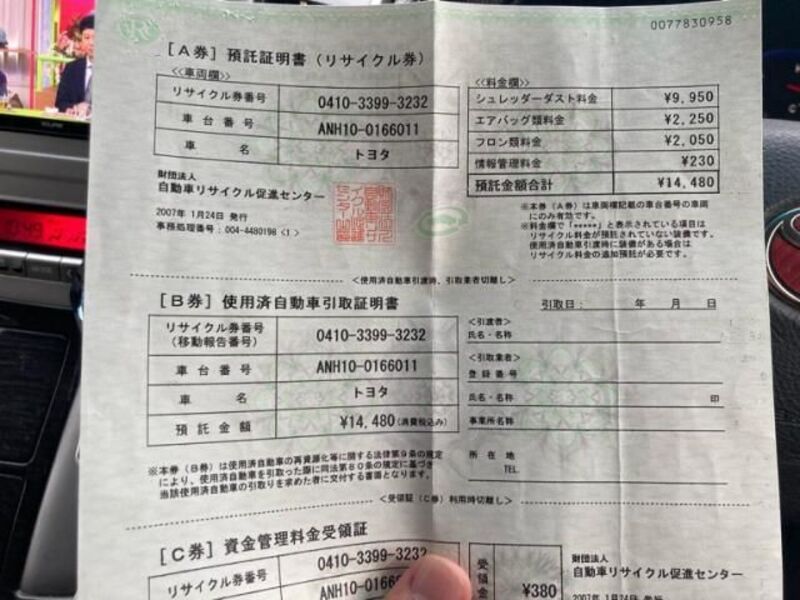 0077830958
[A券] 預託証明書（リサイクル券）
<<車両欄>>
リサイクル券番号 0410-3399-3232
車台番号 ANH10-0166011
車名 トヨタ
<<料金欄>>
シュレッダーダスト料金 ¥9,950
エアバッグ類料金 ¥2,250
フロン類料金 ¥2,050
情報管理料金 ¥230
預託金額合計 ¥14,480
財団法人
自動車リサイクル促進センター
2007年 1月24日 発行
事務処理番号：004-4480198 <1>
※本券（A券）は車両欄記載の車台番号の車両
にのみ有効です。
※料金欄で「*****」と表示されている項目は
リサイクル料金が預託されていない装備です。
使用済自動車引渡時に装備がある場合は
リサイクル料金の追加預託が必要です。
<使用済自動車引渡時、引取業者切離し>
[B券] 使用済自動車引取証明書
引取日： 年 月 日
リサイクル券番号
（移動報告番号） 0410-3399-3232
車台番号 ANH10-0166011
車名 トヨタ
預託金額 ¥14,480(消費税込み)
<引渡者>
氏名・名称
<引取業者>
登録番号
氏名・名称 印
事業所名称
所在地
TEL.
※本券（B券）は使用済自動車の再資源化等に関する法律第９条の規定
により、使用済自動車を引取った際に同法第８０条の規定に基づき
当該使用済自動車の引取りを求めた者に交付する書面となります。
<受領証（C券）利用時切離し>
[C券] 資金管理料金受領証
リサイクル券番号 0410-3399-3232
ANH10-0166
受領金 ¥380
財団法人
自動車リサイクル促進センター
2007年 1月24日 発行